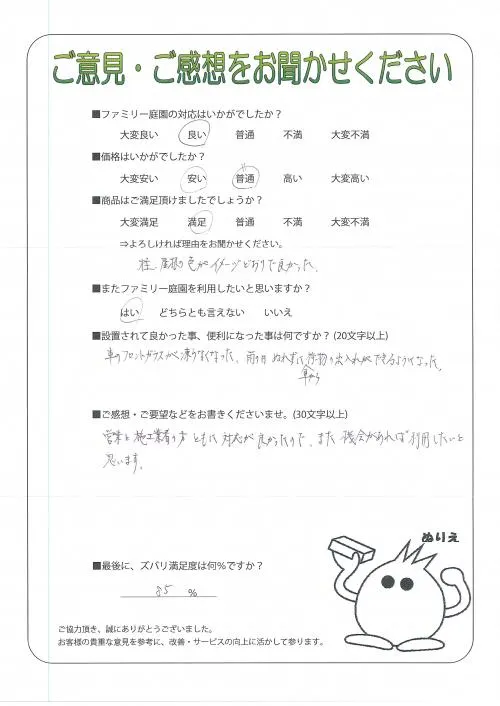 ご意見・ご感想をお聞かせください
■ファミリー庭園の対応はいかがでしたか？
大変良い 良い 普通 不満 大変不満
■価格はいかがでしたか？
大変安い 安い 普通 高い 大変高い
■商品はご満足頂けましたでしょうか？
大変満足 満足 普通 不満 大変不満
⇒よろしければ理由をお聞かせください。
柱、屋根の色がイメージどおりで良かった。
■またファミリー庭園を利用したいと思いますか？
はい どちらとも言えない いいえ
■設置されて良かった事、便利になった事は何ですか？(20文字以上)
車のフロントガラスが凍らなくなった、雨の日 ぬれずに荷物の出入れができるようになった。
車から
■ご感想・ご要望などをお書きくださいませ。(30文字以上)
営業と施工業者の方 ともに 対応が良かったので、また 機会があれば利用したいと
思います。
ぬりえ
■最後に、ズバリ満足度は何％ですか？
85 ％
ご協力頂き、誠にありがとうございました。
お客様の貴重な意見を参考に、改善・サービスの向上に活かして参ります。